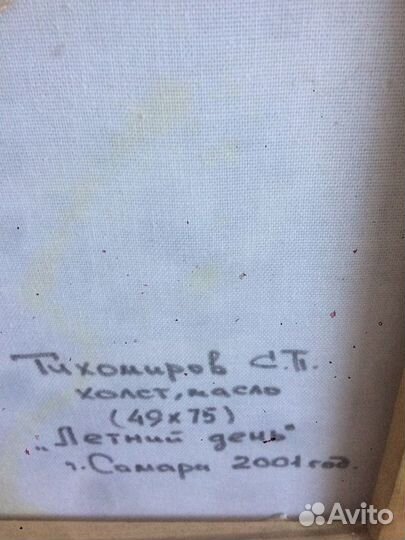 Тихомиров С.П.
холст, масло
(49х75)
„Летний день"
г. Самара 2001 год.
Avito